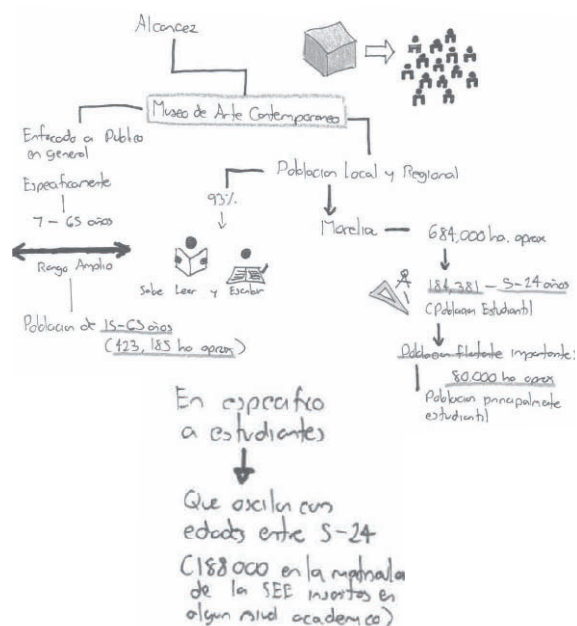 Alcances
Museo de Arte Contemporaneo
Enfocado a Publico
en general
Especificamente
7 - 65 años
Rango Amplio
Poblacion de 15-65 años
(423, 185 ha aprox)
Poblacion Local y Regional
93%
Sabe Leer y Escribir
Morelia — 684,000 ha. aprox
184,381 - 5-24 años
(Poblacion Estudiantil
Poblacion flotante importante:
80.000 ha aprox
Poblacion principalmente
estudiantil
En especifico
a estudiantes
Que oscilan con
edades entre 5-24
(188000 en la matricula
de la SEE insertos en
algun nivel academico)